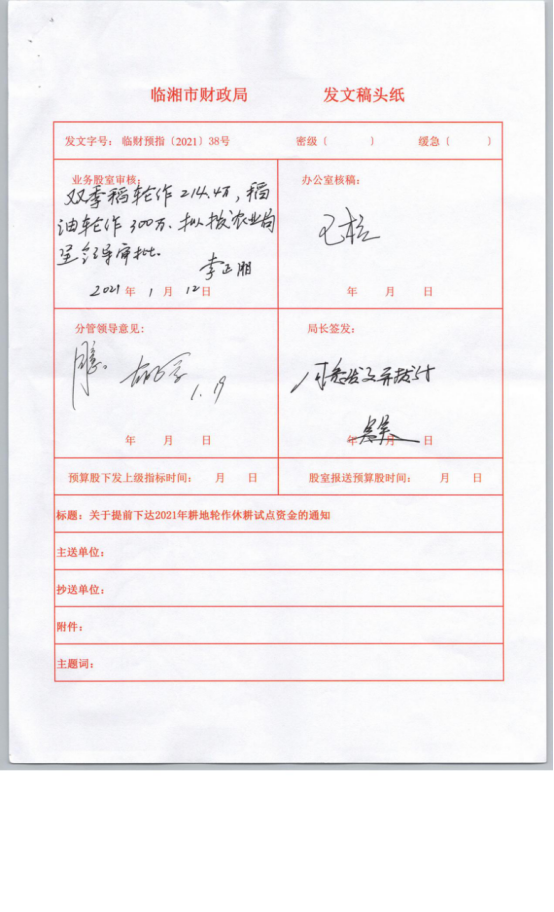 临湘市财政局 发文稿头纸
发文字号：临财预指〔2021〕38号 密级（ ） 缓急（ ）
业务股室审核：
双季稻轮作214.4万，稻
油轮作300万、拟拨农业局
呈领导审批。
2021年1月12日
办公室核稿：
已核
年 月 日
分管领导意见：
1.19
年 月 日
局长签发：
年 月 日
预算股下发上级指标时间： 月 日
股室报送预算股时间： 月 日
标题：关于提前下达2021年耕地轮作休耕试点资金的通知
主送单位：
抄送单位：
附件：
主题词：